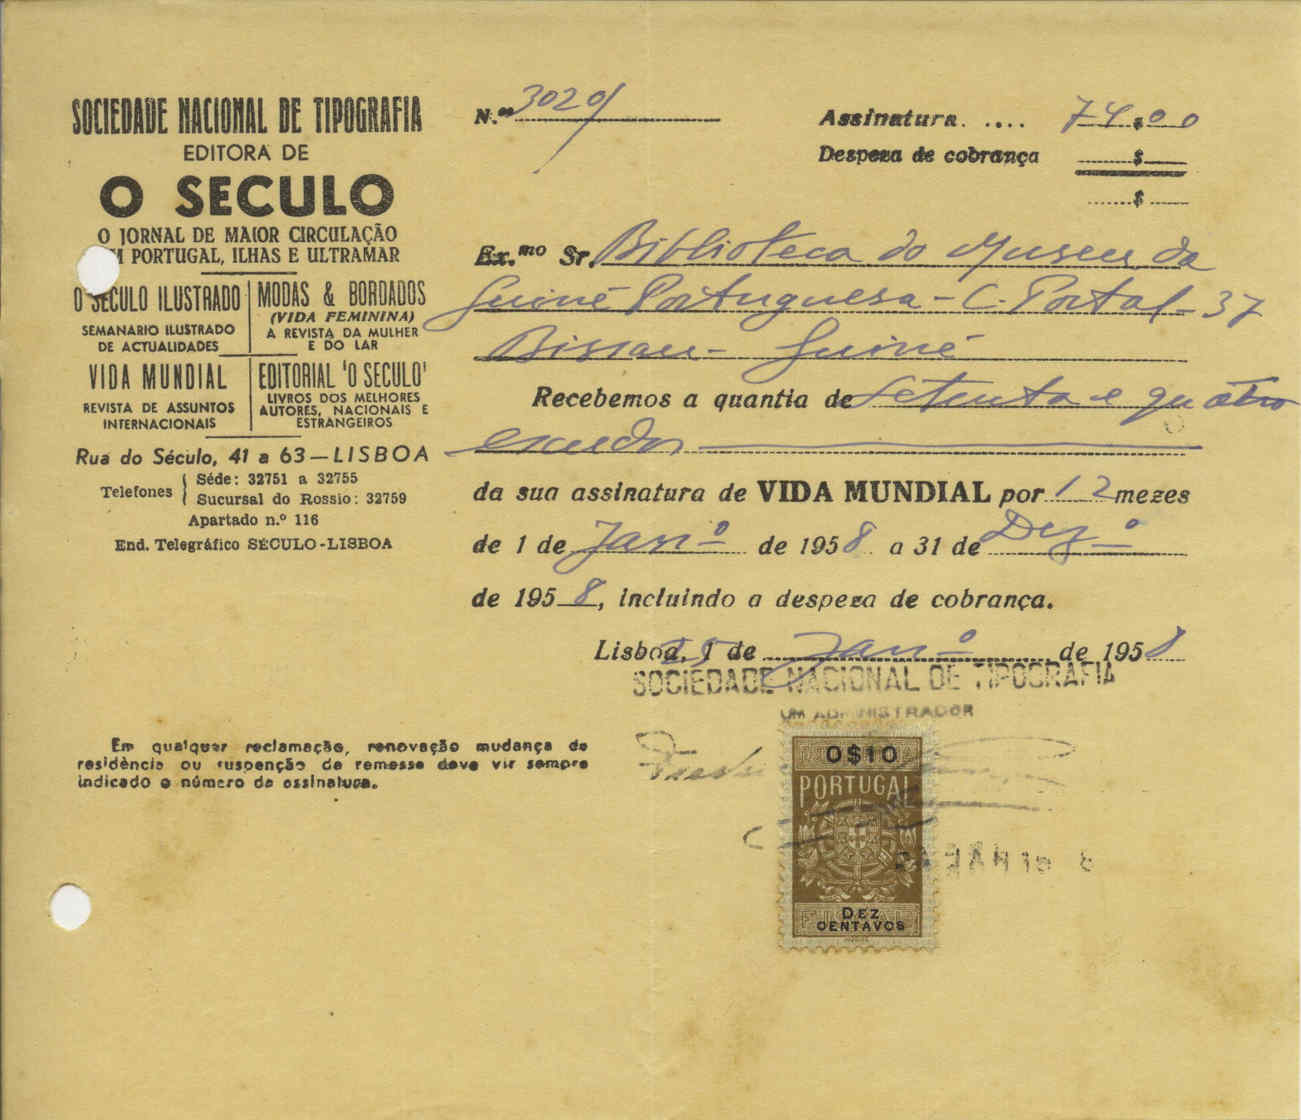 SOCIEDADE NACIONAL DE TIPOGRAFIA
EDITORA DE
O SECULO
O JORNAL DE MAIOR CIRCULAÇÃO
M PORTUGAL, ILHAS E ULTRAMAR
O SECULO ILUSTRADO
SEMANARIO ILUSTRADO
DE ACTUALIDADES
MODAS & BORDADOS
(VIDA FEMININA)
A REVISTA DA MULHER
E DO LAR
VIDA MUNDIAL
REVISTA DE ASSUNTOS
INTERNACIONAIS
EDITORIAL 'O SECULO'
LIVROS DOS MELHORES
AUTORES, NACIONAIS E
ESTRANGEIROS
Rua do Século, 41 a 63—LISBOA
Telefones
Séde: 32751 a 32755
Sucursal do Rossio: 32759
Apartado n.º 116
End. Telegráfico SÉCULO-LISBOA
Em qualquer reclamação, renovação mudança de
residência ou suspenção da remessa deve vir sempre
indicado o número da assinatura.
N.º 3020
Assinatura. .... 74$00
Despeza de cobrança $
$
Ex.mo Sr. Biblioteca do Museu da
Guiné Portuguesa - C. Portal - 37
Bissau - Guiné
Recebemos a quantia de Setenta e quatro
escudos
da sua assinatura de VIDA MUNDIAL por 12 mezes
de 1 de Janº de 1958 a 31 de Dezº
de 1958, incluindo a despeza de cobrança.
Lisboa, 1 de Janº de 1958
SOCIEDADE NACIONAL DE TIPOGRAFIA
UM ADMINISTRADOR
0$10
PORTUGAL
FISCAL
DEZ
CENTAVOS